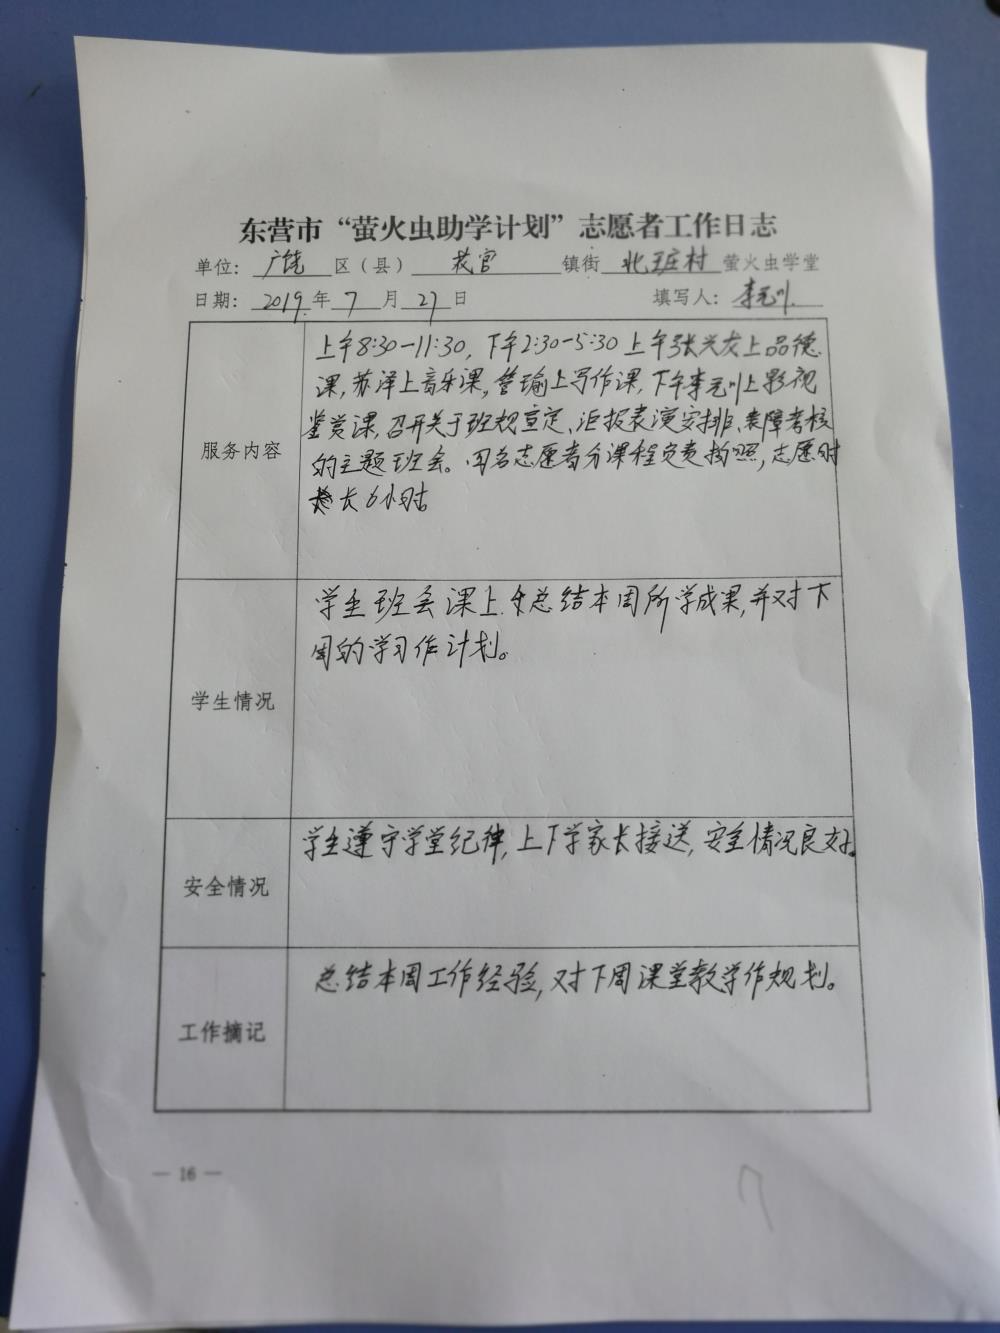 东营市“萤火虫助学计划”志愿者工作日志
单位：广饶区（县）花官镇街北王庄村萤火虫学堂
日期：2019年7月27日 填写人：李元
服务内容
上午8:30-11:30，下午2:30-5:30上午张兴友上品德
课，苏泽上音乐课，瑜上写作课，下午李元上影视
鉴赏课，召开关于班规宣定、汇报表演安排、障考核
的主题班会。四名志愿者分课程负责拍照，志愿时
长6小时
学生情况
学生班会课上总结本周所学成果，并对下
周的学习作计划。
安全情况
学生遵守学堂纪律，上下学家长接送，安全情况良好。
工作摘记
总结本周工作经验，对下周课堂教学作规划。
— 16 —